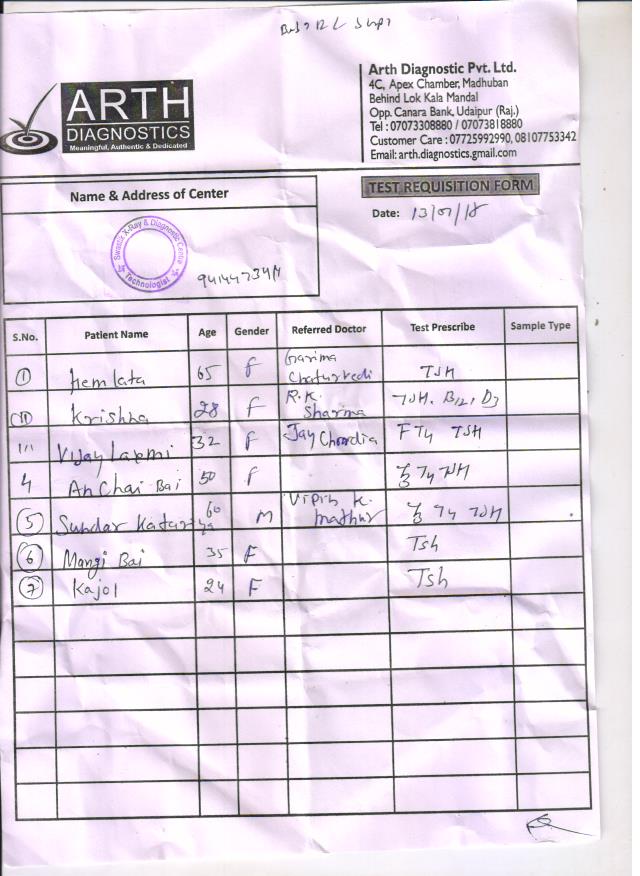 ARTH
DIAGNOSTICS
Meaningful, Authentic & Dedicated
Arth Diagnostic Pvt. Ltd.
4C, Apex Chamber, Madhuban
Behind Lok Kala Mandal
Opp. Canara Bank, Udaipur (Raj.)
Tel : 07073308880 / 07073818880
Customer Care : 07725992990, 08107753342
Email: arth.diagnostics.gmail.com
Name & Address of Center
TEST REQUISITION FORM
Date: 13/07/18
Swastik X-Ray & Diagnostic Centre
Technologist
S.No. Patient Name Age Gender Referred Doctor Test Prescribe Sample Type
1 Hemlata 65 F Garima Chaturvedi TSH
II Krishna 28 F R.K. Sharma TSH, B12, D3
III Vijay Laxmi 32 F Jay Chordia F T4 TSH
4 An Chai Bai 50 F T3 T4 TSH
5 Sundar Katariya 60 M Vipin K. Mathur T3 T4 TSH
6 Mangi Bai 35 F Tsh
7 Kajol 24 F Tsh